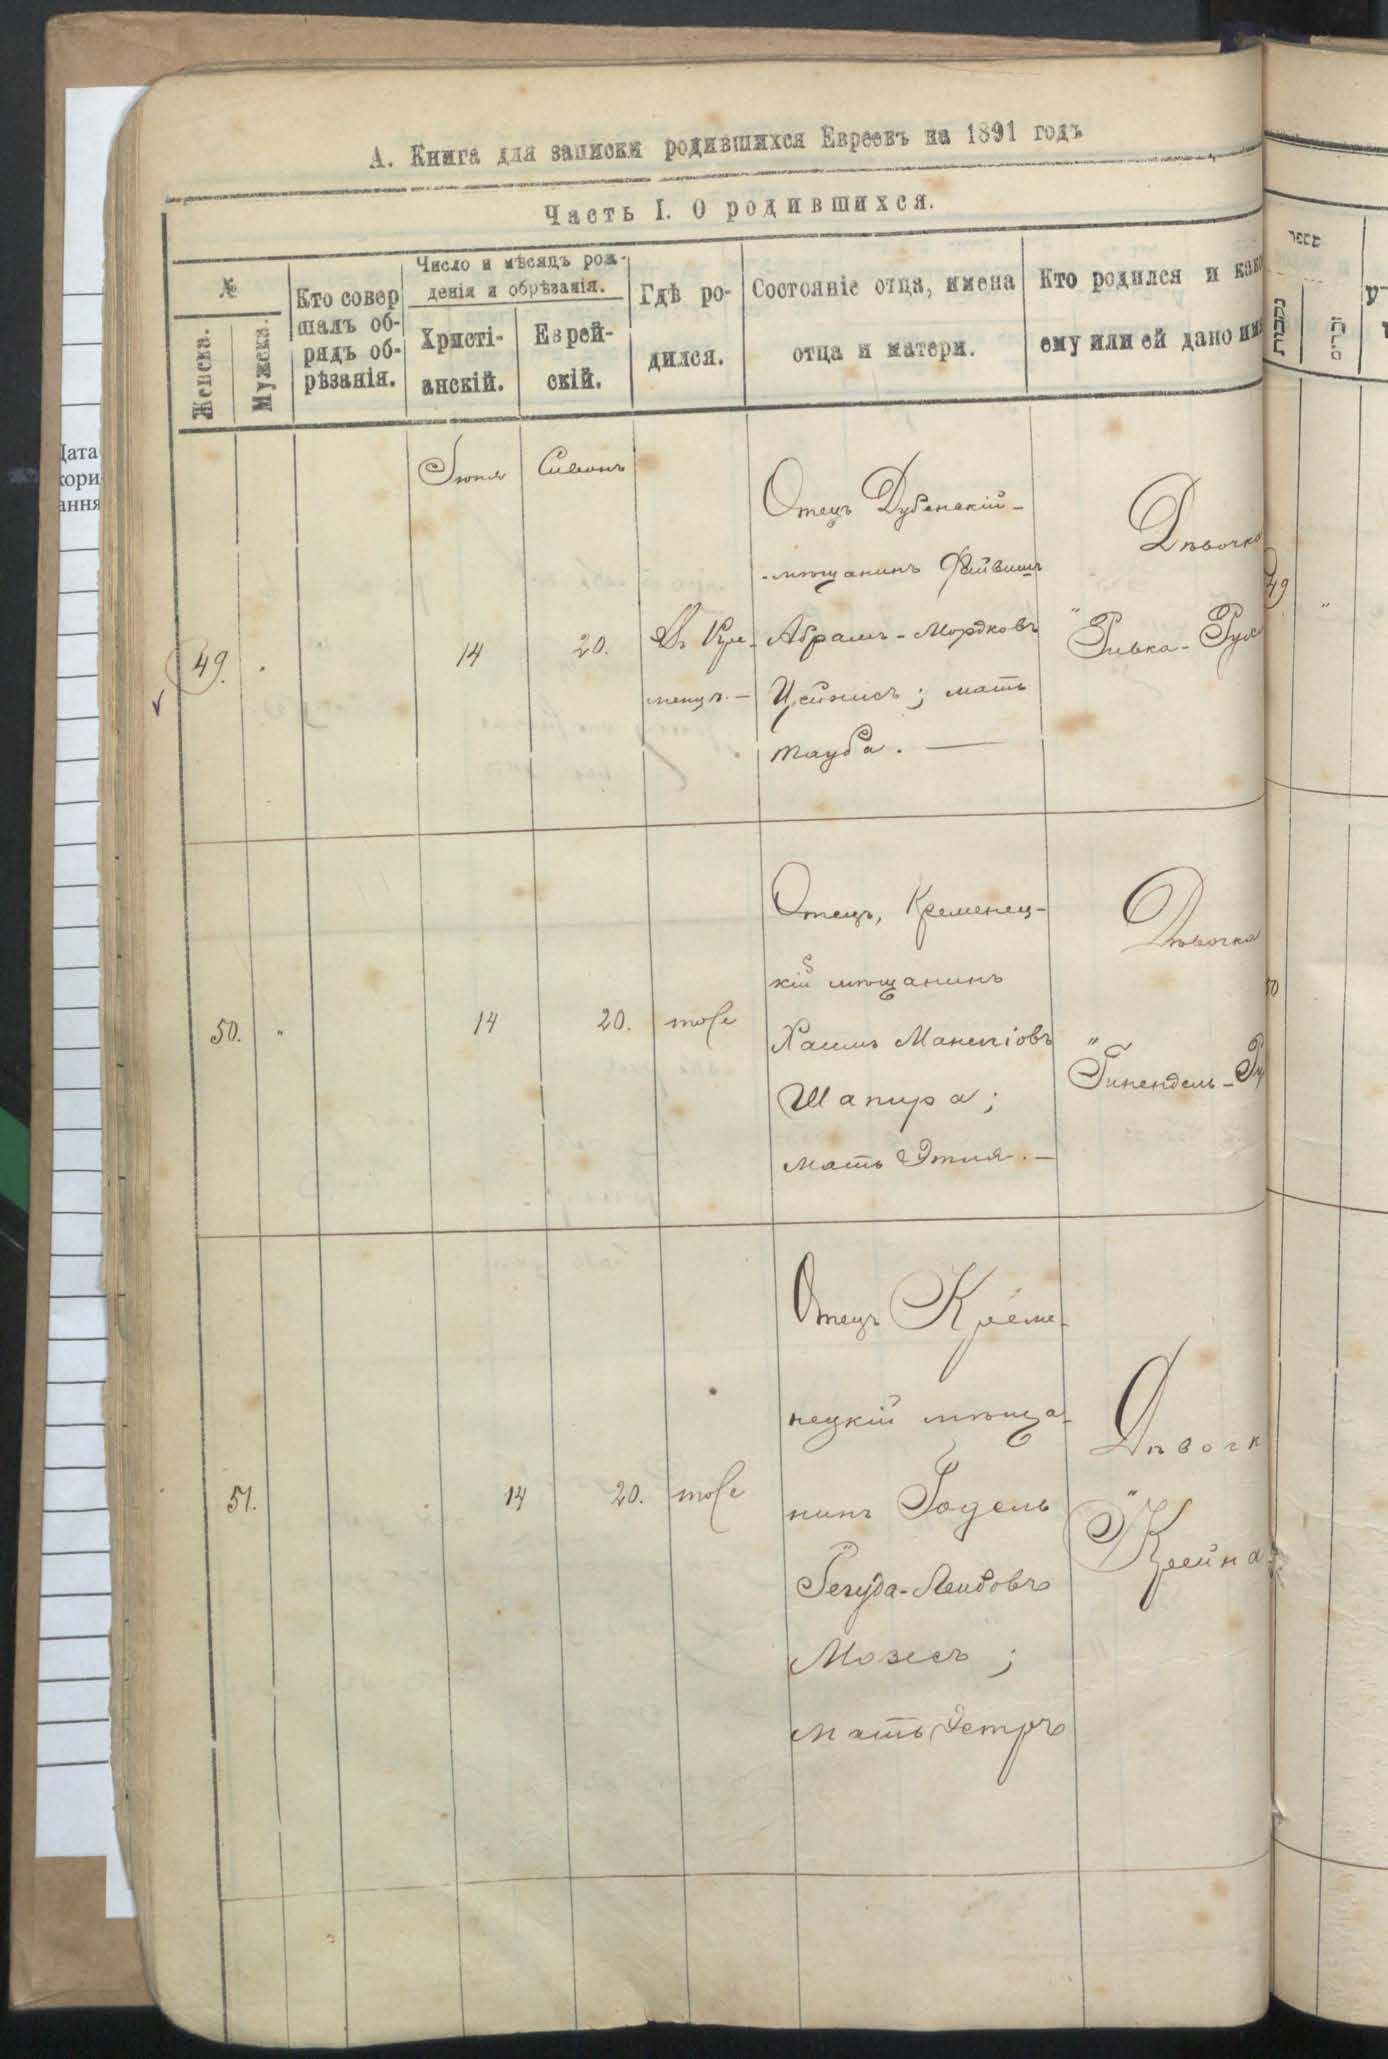 А. Книга для записки родившихся Евреевъ на 1891 годъ
Часть I. О родившихся.
№
Женска.
Мужска.
Кто совер
шалъ об-
рядъ об-
рѣзанія.
Число и мѣсяцъ рож-
денія и обрѣзанія.
Христі-
анскій.
Еврей-
скій.
Гдѣ ро-
дился.
Состояніе отца, имена
отца и матери.
Кто родился и како
ему или ей дано имя
Іюня
Сивонъ
49.
14
20.
Въ Кре-
менцѣ. —
Отецъ Дубенскій-
-мѣщанинъ Файвишъ
Абрамъ-Мордковъ
Цейнисъ; мать
Тауба. —
Дѣвочка
"Ривка-Рухл
50.
"
14
20.
тоже
Отецъ, Кременец-
кій мѣщанинъ
Хаимъ
Шапира;
мать Этля. —
Дѣвочка
51.
14
20.
тоже
Отецъ Креме-
нецкій мѣща-
нинъ Годель
Лейбовъ
Мозесъ;
мать Эстръ
Дѣвочк
"Крейна
49
"
50
מספר
נקבות
זכרים
Дата
кори
ання